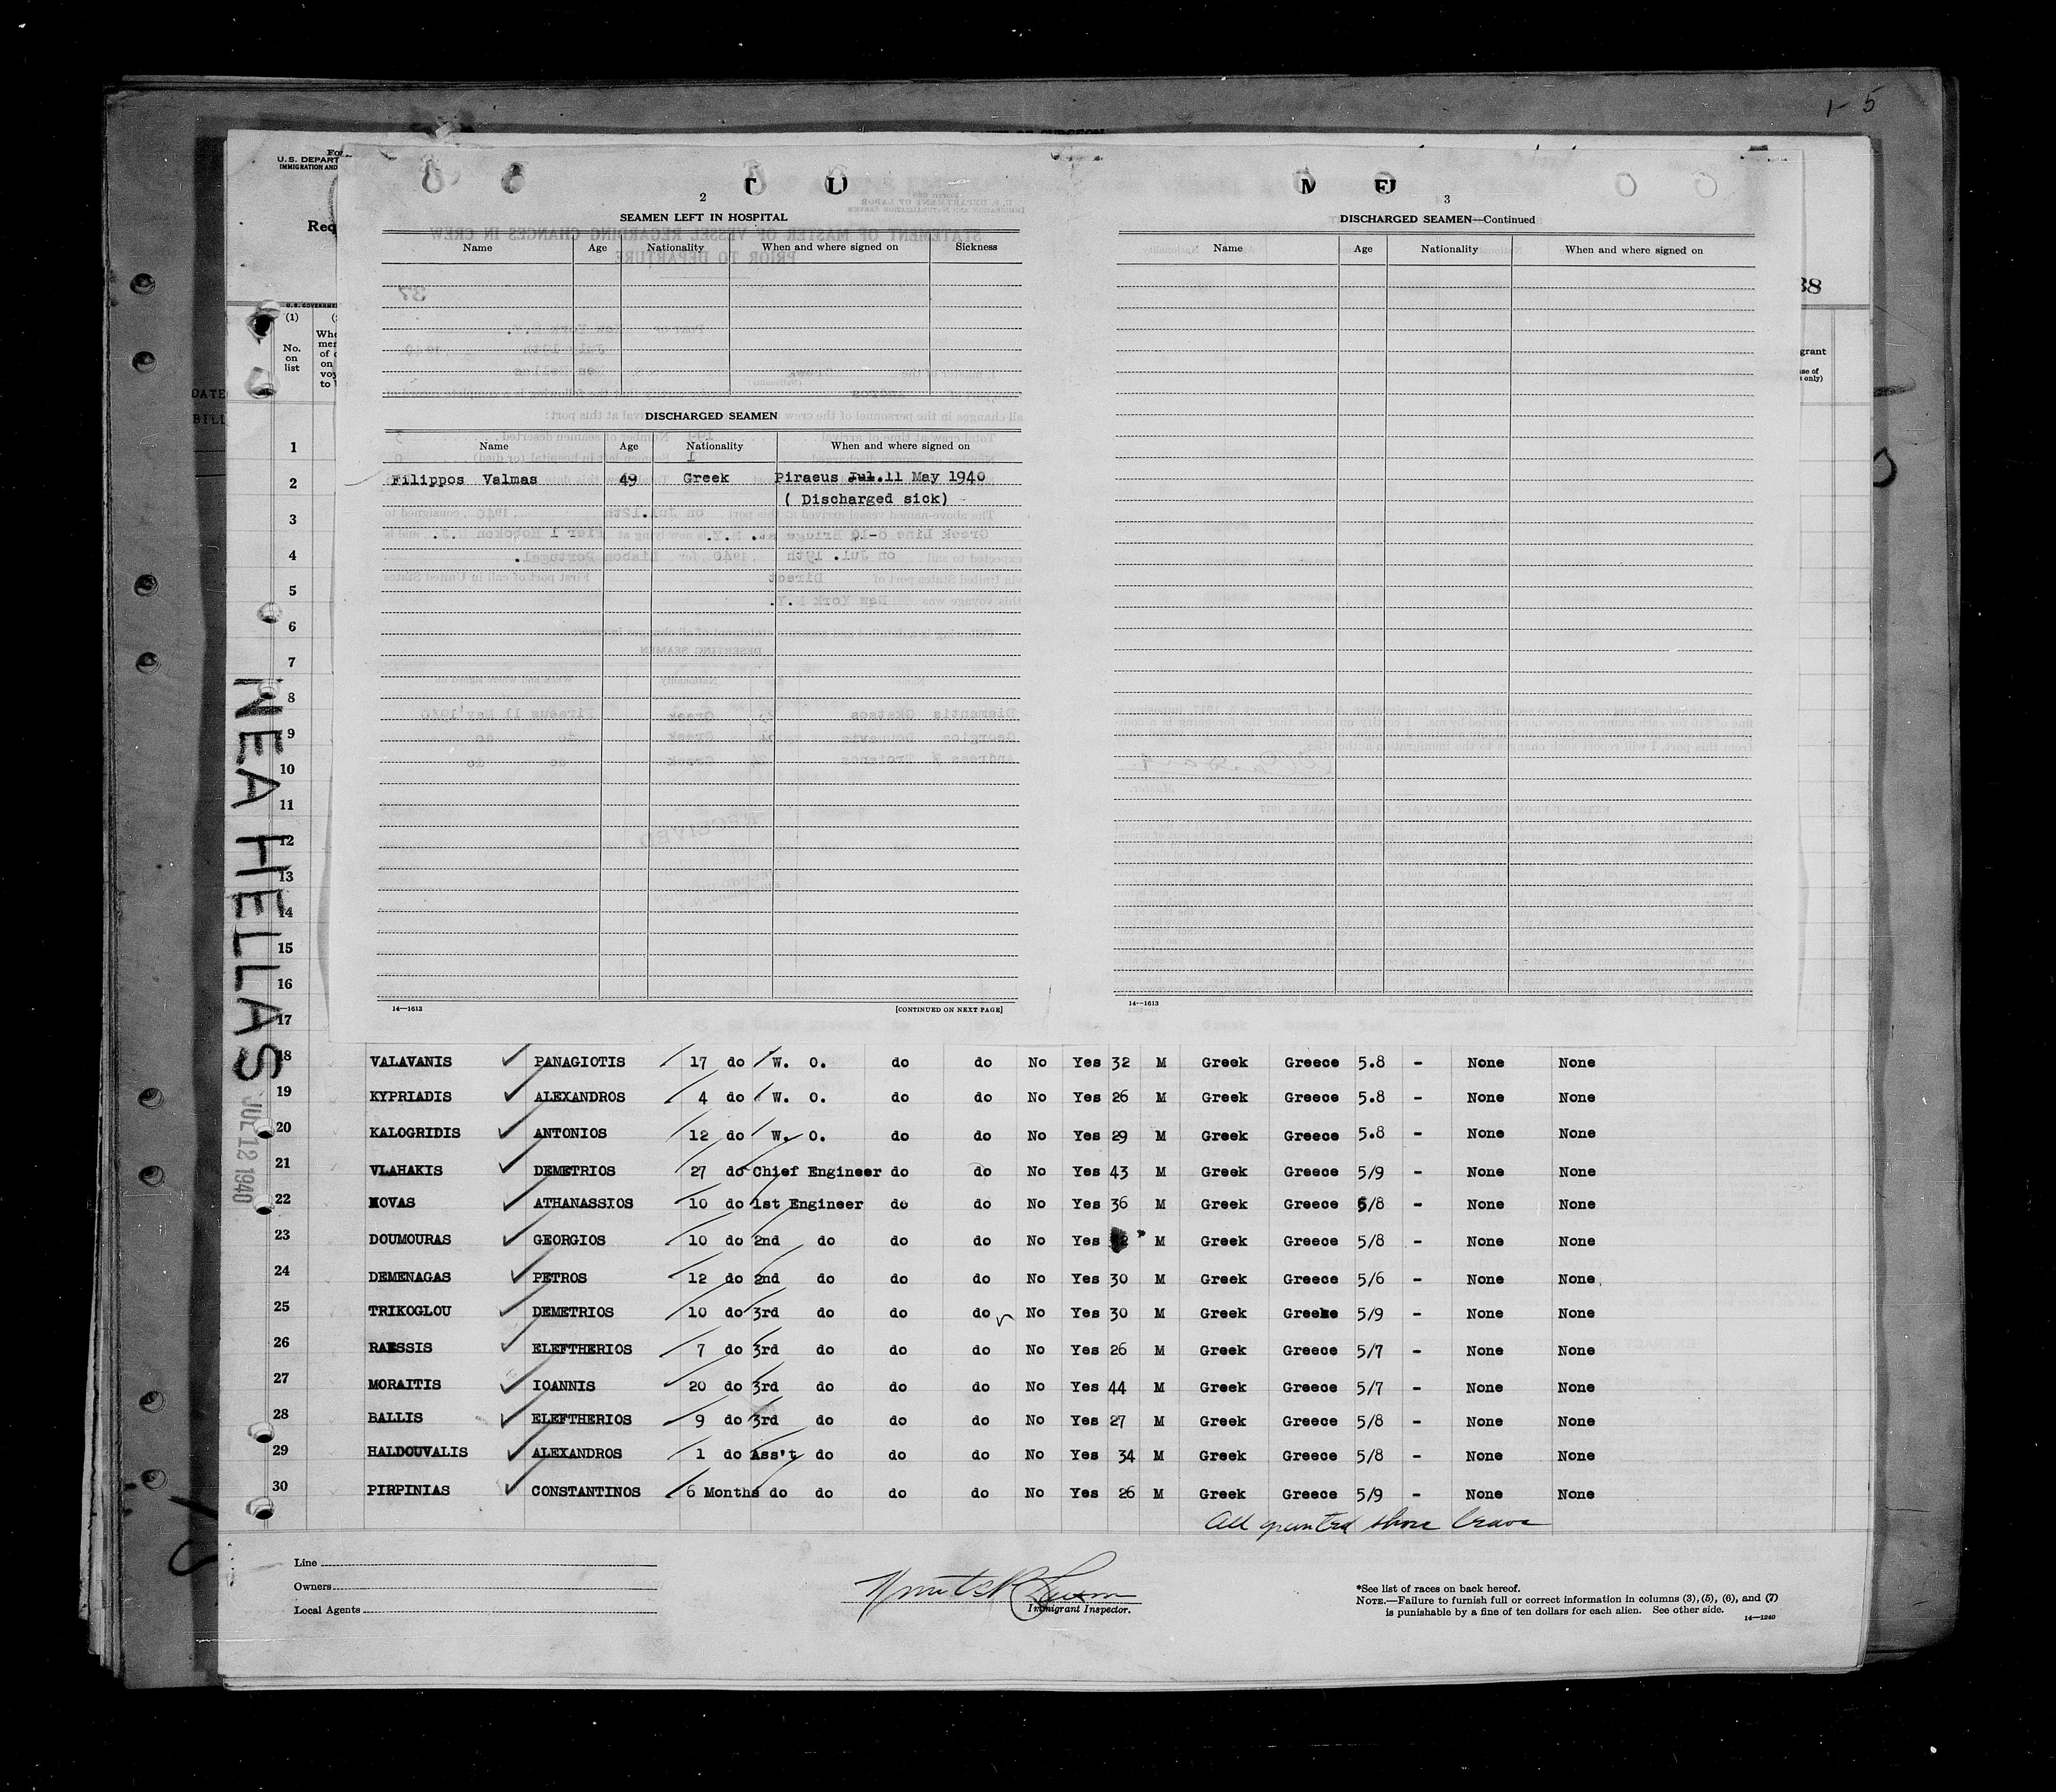 1-5
U.S. DEPART
IMMIGRATION AND
Req
U.S. GOVERNME
(1)
No.
on
list
DATE
BILL
2
SEAMEN LEFT IN HOSPITAL
Name Age Nationality When and where signed on Sickness
DISCHARGED SEAMEN
Name Age Nationality When and where signed on
1
Filippos Valmas 49 Greek Piraeus Jul.11 May 1940
( Discharged sick)
14—1613 [CONTINUED ON NEXT PAGE]
3
DISCHARGED SEAMEN—Continued
Name Age Nationality When and where signed on
14—1613
38
grant
only)
1
2
3
4
5
6
7
8
9
10
11
12
13
14
15
16
17
NEA HELLAS
JUL 12 1940
18 VALAVANIS PANAGIOTIS 17 do W. O. do do No Yes 32 M Greek Greece 5.8 - None None
19 KYPRIADIS ALEXANDROS 4 do W. O. do do No Yes 26 M Greek Greece 5.8 - None None
20 KALOGRIDIS ANTONIOS 12 do W. O. do do No Yes 29 M Greek Greece 5.8 - None None
21 VLAHAKIS DEMETRIOS 27 do Chief Engineer do do No Yes 43 M Greek Greece 5/9 - None None
22 NOVAS ATHANASSIOS 10 do 1st Engineer do do No Yes 36 M Greek Greece 5/8 - None None
23 DOUMOURAS GEORGIOS 10 do 2nd do do do No Yes M Greek Greece 5/8 - None None
24 DEMENAGAS PETROS 12 do 2nd do do do No Yes 30 M Greek Greece 5/6 - None None
25 TRIKOGLOU DEMETRIOS 10 do 3rd do do do No Yes 30 M Greek Greece 5/9 - None None
26 RAESSIS ELEFTHERIOS 7 do 3rd do do do No Yes 26 M Greek Greece 5/7 - None None
27 MORAITIS IOANNIS 20 do 3rd do do do No Yes 44 M Greek Greece 5/7 - None None
28 BALLIS ELEFTHERIOS 9 do 3rd do do do No Yes 27 M Greek Greece 5/8 - None None
29 HALDOUVALIS ALEXANDROS 1 do Ass't do do do No Yes 34 M Greek Greece 5/8 - None None
30 PIRPINIAS CONSTANTINOS 6 Months do do do do No Yes 26 M Greek Greece 5/9 - None None
All granted shore leave
Line
Owners
Local Agents
Immigrant Inspector.
*See list of races on back hereof.
NOTE.—Failure to furnish full or correct information in columns (3), (5), (6), and (7)
is punishable by a fine of ten dollars for each alien. See other side. 14—1240